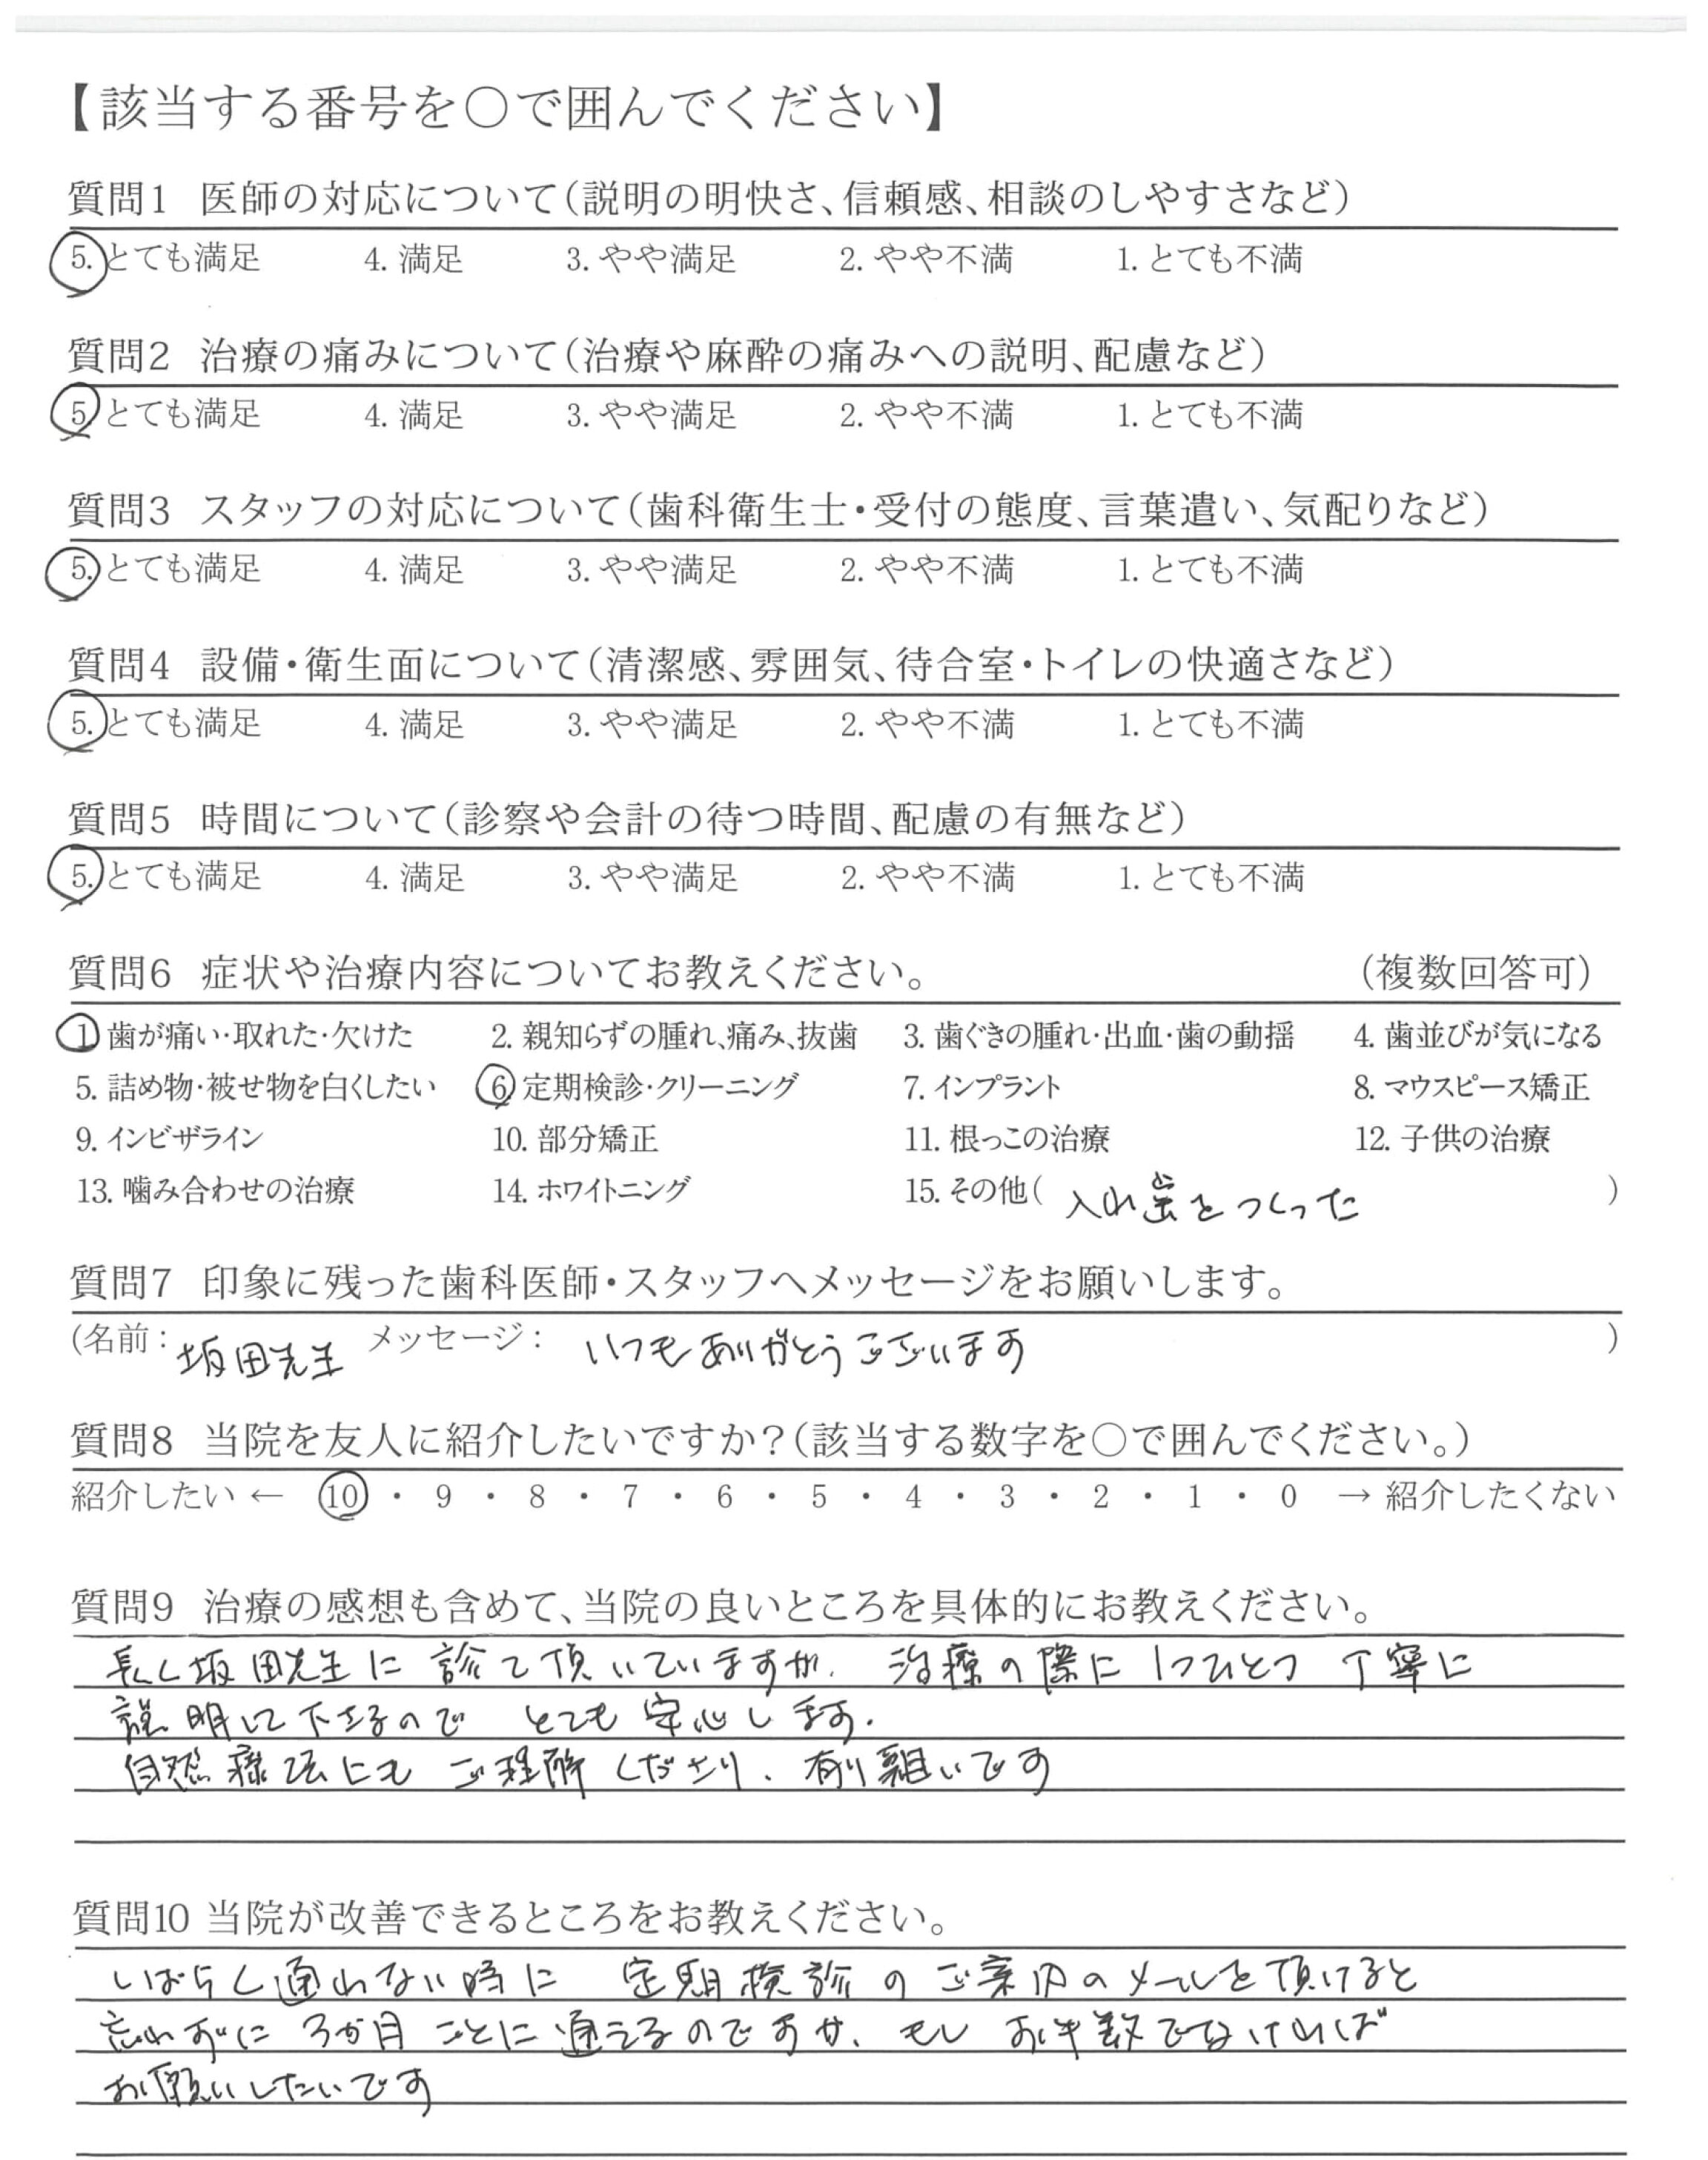 【該当する番号を○で囲んでください】
質問1 医師の対応について(説明の明快さ、信頼感、相談のしやすさなど)
5. とても満足 4. 満足 3. やや満足 2. やや不満 1. とても不満
質問2 治療の痛みについて(治療や麻酔の痛みへの説明、配慮など)
5. とても満足 4. 満足 3. やや満足 2. やや不満 1. とても不満
質問3 スタッフの対応について(歯科衛生士・受付の態度、言葉遣い、気配りなど)
5. とても満足 4. 満足 3. やや満足 2. やや不満 1. とても不満
質問4 設備・衛生面について(清潔感、雰囲気、待合室・トイレの快適さなど)
5. とても満足 4. 満足 3. やや満足 2. やや不満 1. とても不満
質問5 時間について(診察や会計の待つ時間、配慮の有無など)
5. とても満足 4. 満足 3. やや満足 2. やや不満 1. とても不満
質問6 症状や治療内容についてお教えください。 (複数回答可)
1 歯が痛い・取れた・欠けた 2. 親知らずの腫れ、痛み、抜歯 3. 歯ぐきの腫れ・出血・歯の動揺 4. 歯並びが気になる
5. 詰め物・被せ物を白くしたい 6. 定期検診・クリーニング 7. インプラント 8. マウスピース矯正
9. インビザライン 10. 部分矯正 11. 根っこの治療 12. 子供の治療
13. 噛み合わせの治療 14. ホワイトニング 15. その他( 入れ歯をつくった )
質問7 印象に残った歯科医師・スタッフへメッセージをお願いします。
(名前: 坂田先生 メッセージ: いつもありがとうございます )
質問8 当院を友人に紹介したいですか?(該当する数字を○で囲んでください。)
紹介したい ← 10 ・ 9 ・ 8 ・ 7 ・ 6 ・ 5 ・ 4 ・ 3 ・ 2 ・ 1 ・ 0 → 紹介したくない
質問9 治療の感想も含めて、当院の良いところを具体的にお教えください。
長く坂田先生に診て頂いていますが、治療の際に1つひとつ丁寧に
説明して下さるので とても安心します。
自然療法にもご理解くださり、有り難いです
質問10 当院が改善できるところをお教えください。
しばらく通れない時に 定期検診のご案内のメールを頂けると
忘れずに3か月ごとに通えるのですが、もしお手数でなければ
お願いしたいです